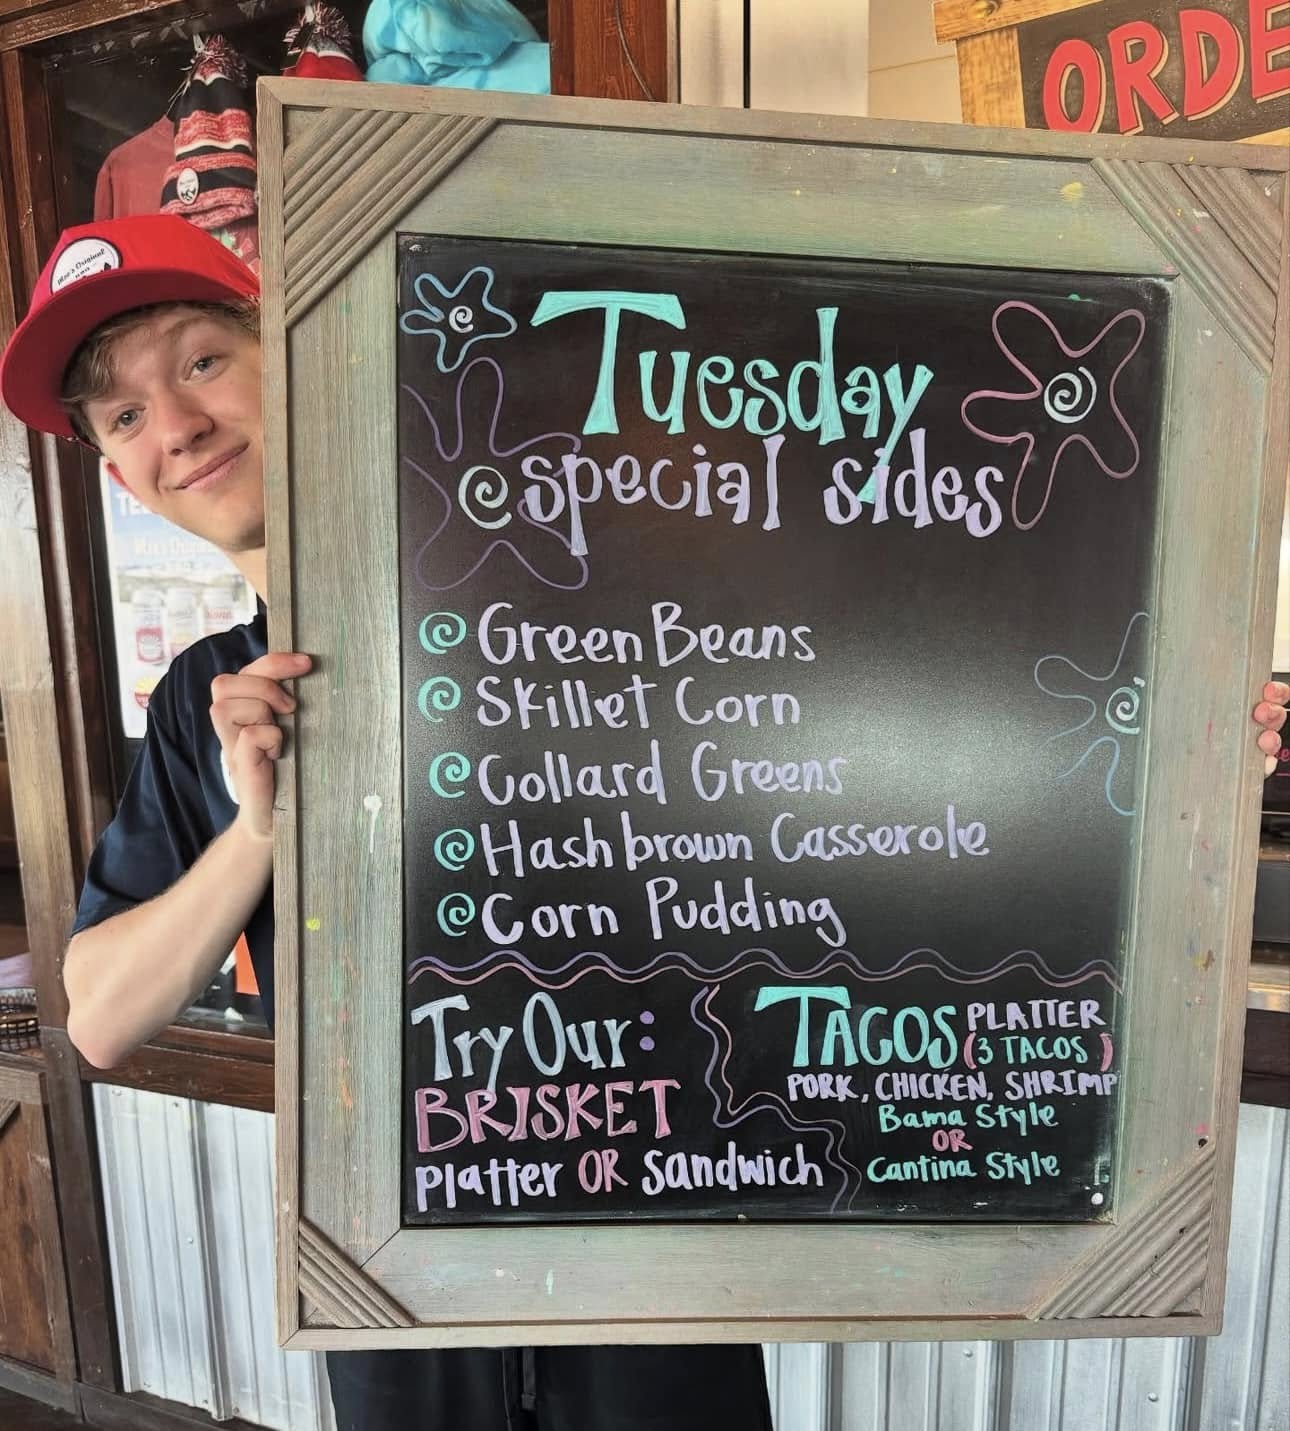 ORDE
Moe's Original
BBQ
Tuesday
special sides
Green Beans
Skillet Corn
Collard Greens
Hashbrown Casserole
Corn Pudding
Try Our:
BRISKET
platter OR sandwich
TACOS PLATTER
(3 TACOS)
PORK, CHICKEN, SHRIMP
Bama Style
OR
Cantina Style